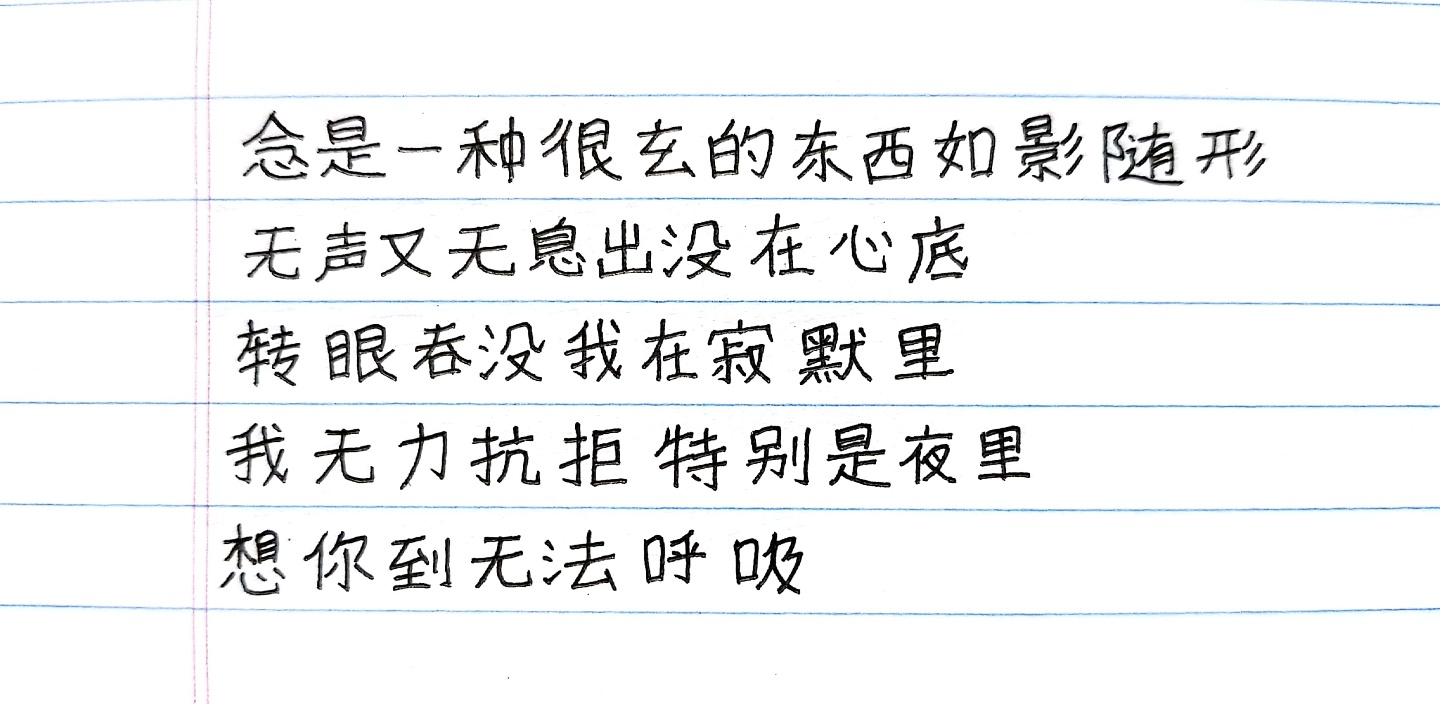 念是一种很玄的东西如影随形
无声又无息出没在心底
转眼吞没我在寂默里
我无力抗拒特别是夜里
想你到无法呼吸